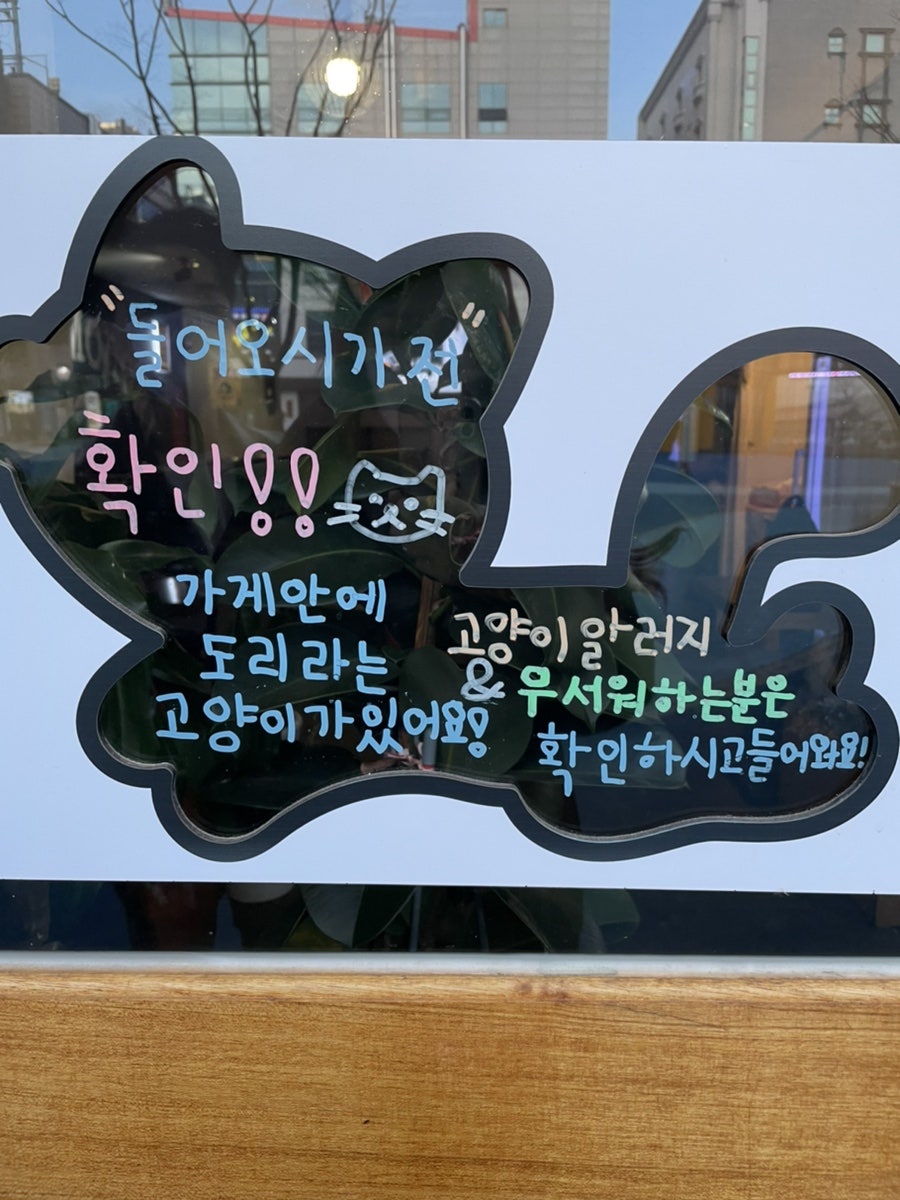 "들어오시기 전"
확인!!
가게안에
도리라는
고양이가있어요!
고양이알러지
& 무서워하는분은
확인하시고들어와요!